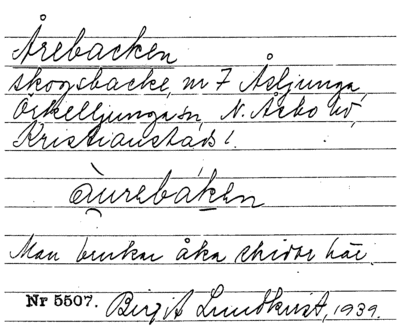 Årebacken
skogsbacke, nr 7 Åsljunga,
Örkelljunga sn, N. Åsbo hd,
Kristianstads l.
àurebáken
Man brukar åka skidor här.
Nr 5507. Birgit Lundkvist, 1939.